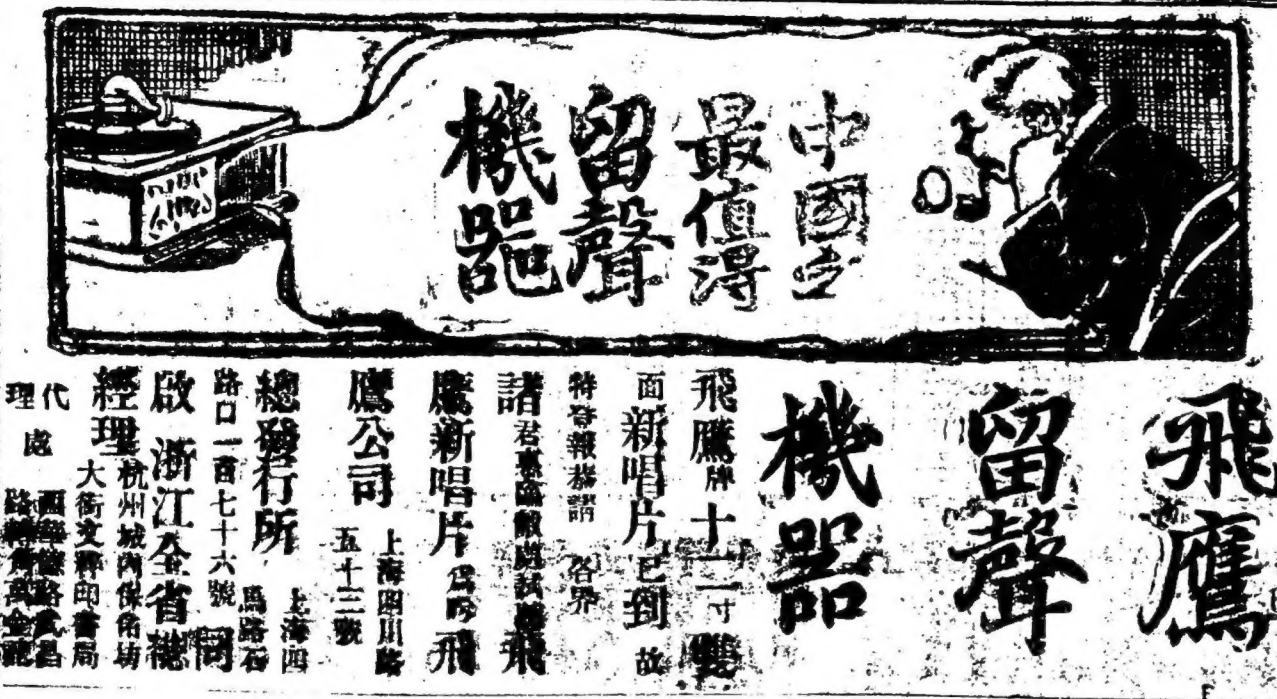 中國之
最值得
留聲
機器
飛鷹
留聲
機器
飛鷹牌十二寸雙
面新唱片已到 故
特登報恭請 各界
諸君惠臨敝處試聽飛
鷹新唱片爲盼 飛
鷹公司 上海四川路
五十三號
總發行所 上海四
馬路石
路口一百七十六號 同
啟 浙江全省總
經理 杭州城內保佑坊
大街文粹印書局
代理處 路武昌
路轉角萬金龍